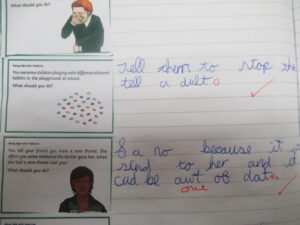 What should you do?
Being Safe with Medicine
You see some children playing with different coloured
tablets in the playground at school.
What should you do?
Tell them to stop the
tell a dult.
Being Safe with Medicine
You tell your friend you have a sore throat. She
offers you some medicine the doctor gave her, when
she had a sore throat last year.
What should you do?
Sa no because it
to her and
cud be awt of date
out